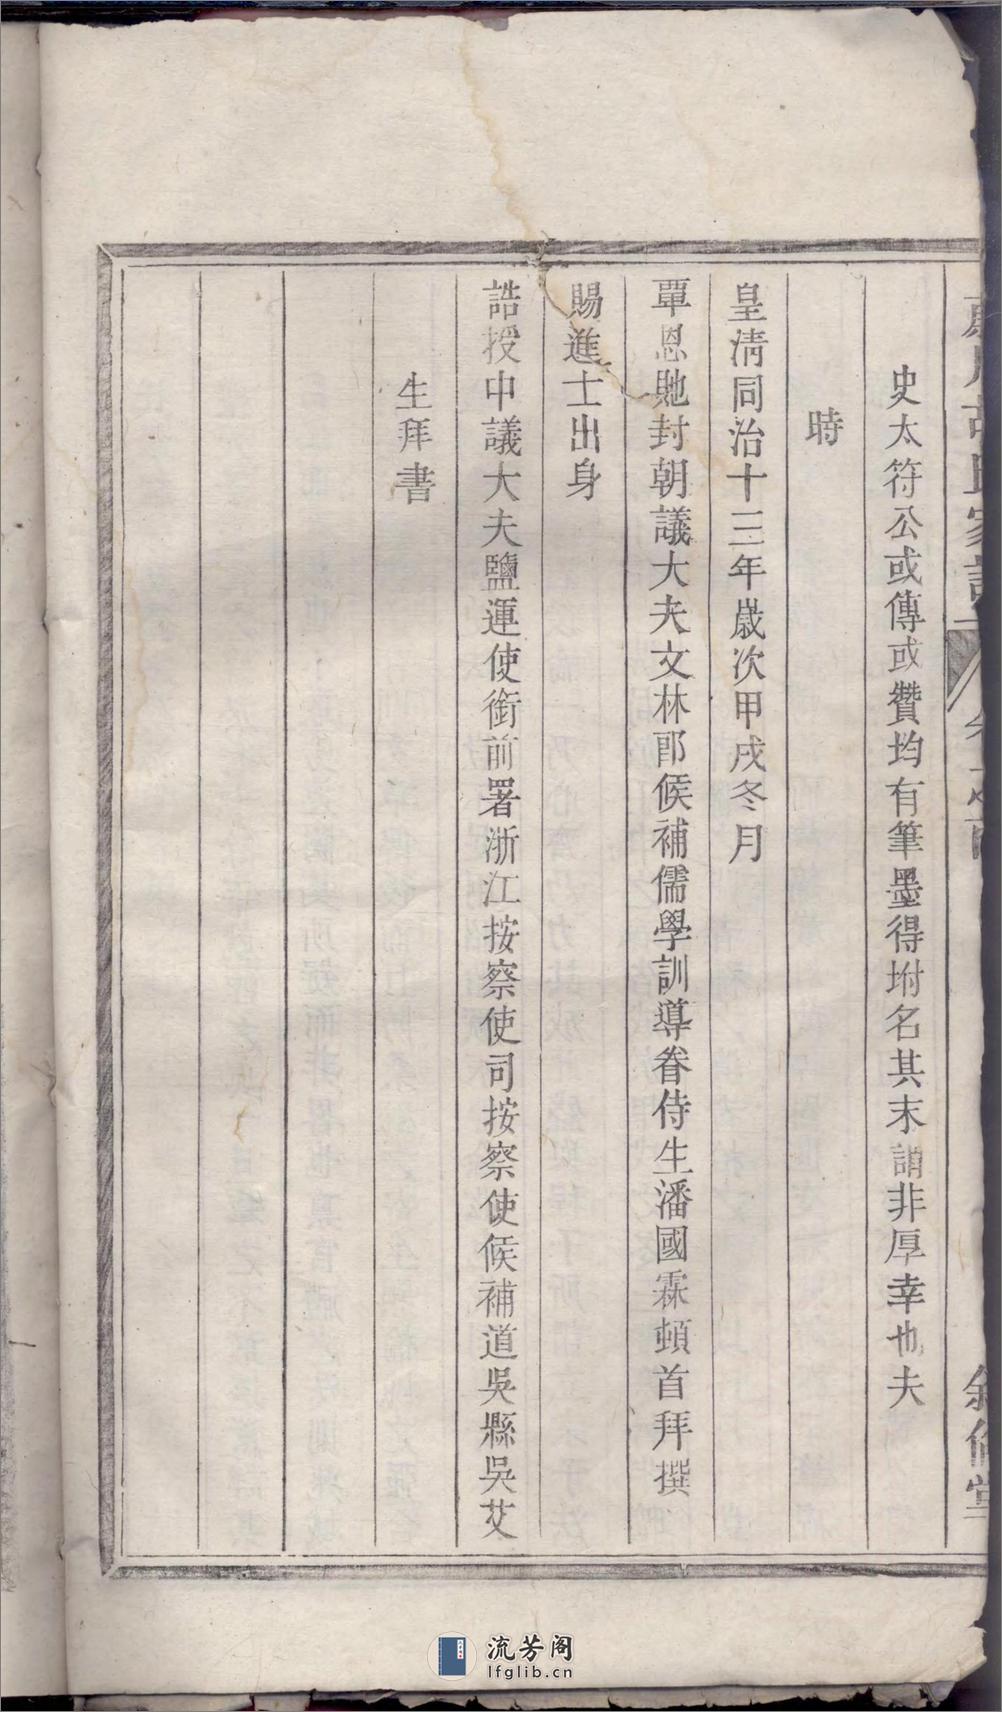 胡氏家譜 卷之首 敘倫堂
史太符公或傳或贊均有筆墨得坿名其末詎非厚幸也夫
時
皇清同治十三年歲次甲戌冬月
覃恩貤封朝議大夫文林郎候補儒學訓導眷侍生潘國霖頓首拜撰
賜進士出身
誥授中議大夫鹽運使銜前署浙江按察使司按察使候補道吳縣吳艾
生拜書
流芳阁
lfglib.cn